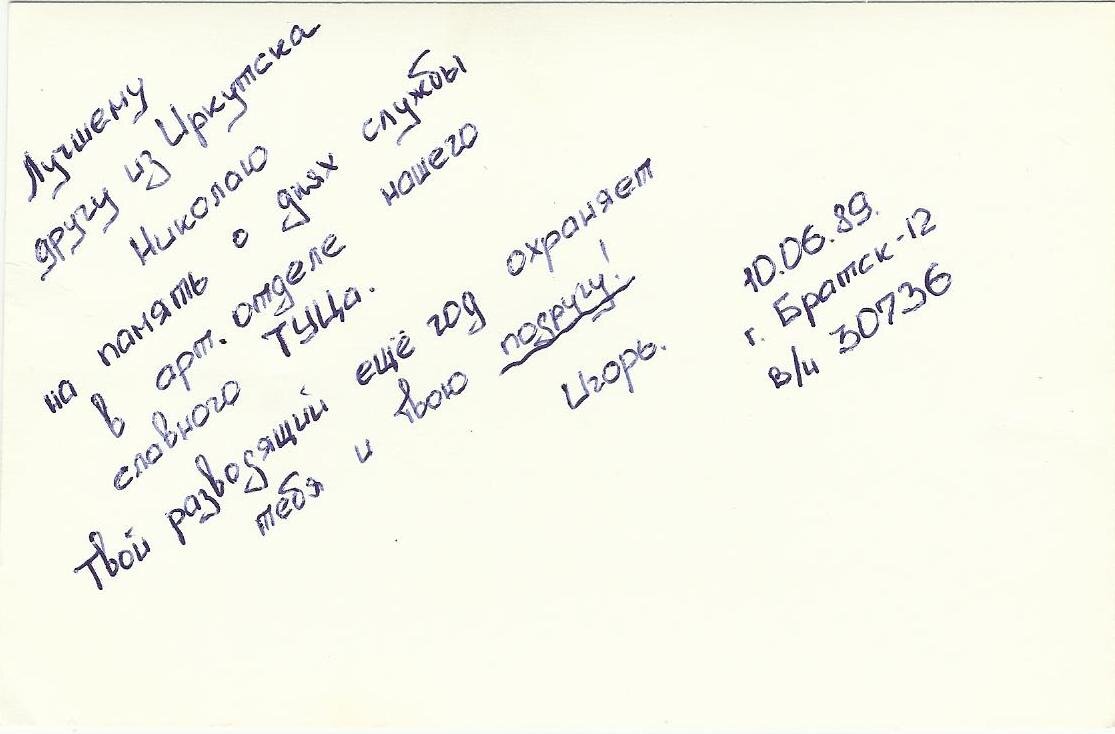 Лучшему
другу из Иркутска
Николаю
на память о днях службы
в арт. отделе нашего
славного ТУЦа.
Твой разводящий ещё год охраняет
тебя и твою подругу!
Игорь.
10.06.89.
г. Братск-12
в/ч 30736